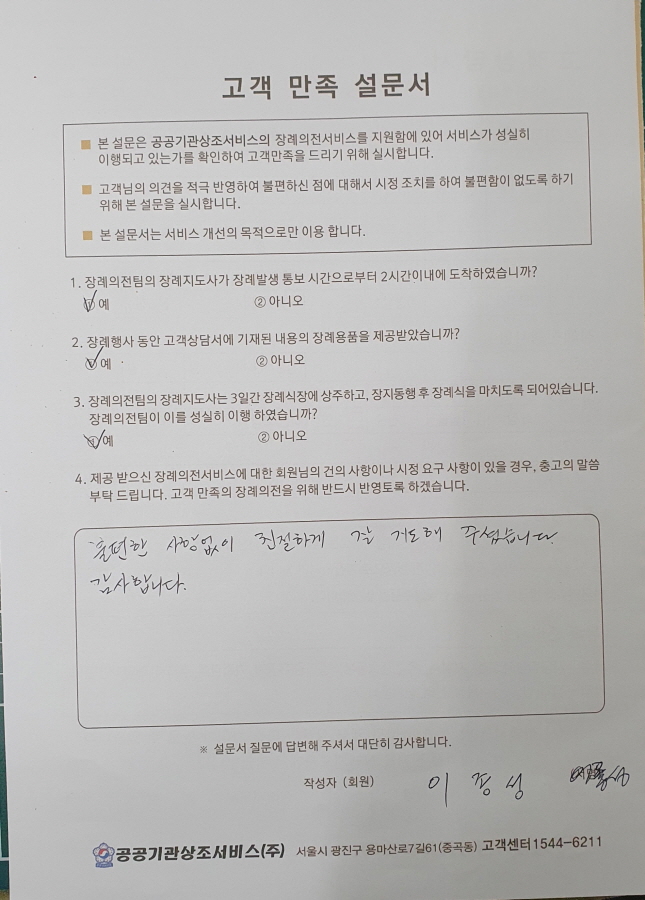 고객 만족 설문서
본 설문은 공공기관상조서비스의 장례의전서비스를 지원함에 있어 서비스가 성실히
이행되고 있는가를 확인하여 고객만족을 드리기 위해 실시합니다.
고객님의 의견을 적극 반영하여 불편하신 점에 대해서 시정 조치를 하여 불편함이 없도록 하기
위해 본 설문을 실시합니다.
본 설문서는 서비스 개선의 목적으로만 이용 합니다.
1. 장례의전팀의 장례지도사가 장례발생 통보 시간으로부터 2시간이내에 도착하였습니까?
① 예 ② 아니오
2. 장례행사 동안 고객상담서에 기재된 내용의 장례용품을 제공받았습니까?
① 예 ② 아니오
3. 장례의전팀의 장례지도사는 3일간 장례식장에 상주하고, 장지동행 후 장례식을 마치도록 되어있습니다.
장례의전팀이 이를 성실히 이행 하였습니까?
① 예 ② 아니오
4. 제공 받으신 장례의전서비스에 대한 회원님의 건의 사항이나 시정 요구 사항이 있을 경우, 충고의 말씀
부탁 드립니다. 고객 만족의 장례의전을 위해 반드시 반영토록 하겠습니다.
불편한 사항없이 친절하게 잘 지도해 주셨습니다.
감사합니다.
※ 설문서 질문에 답변해 주셔서 대단히 감사합니다.
작성자 (회원) 이 성
공공기관상조서비스(주) 서울시 광진구 용마산로7길61(중곡동) 고객센터1544-6211